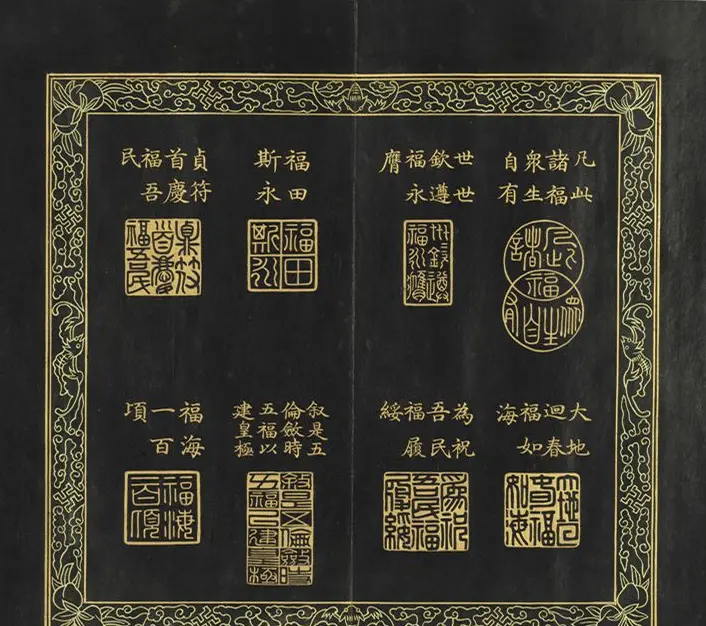 凡此
諸福
衆生
自有
世世
欽遵
福永
膺
福田
斯永
貞符
首慶
福吾
民
大地
迴春
福如
海
為祝
吾民
福履
綏
叙是五
倫斂時
五福以
建皇極
福海
一百
頃